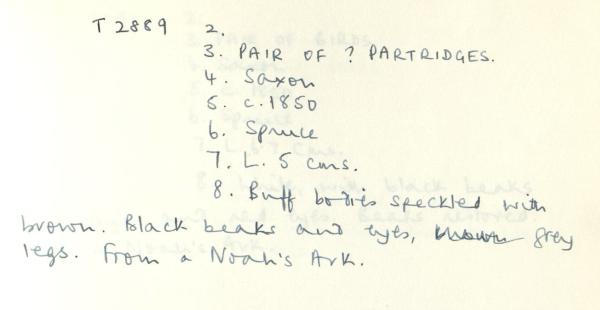 T 2889 2.
3. PAIR OF ? PARTRIDGES.
4. Saxon
5. c.1850
6. Spruce
7. L. 5 cms.
8. Buff bodies speckled with
brown. Black beaks and eyes, grey
legs. From a Noah's Ark.